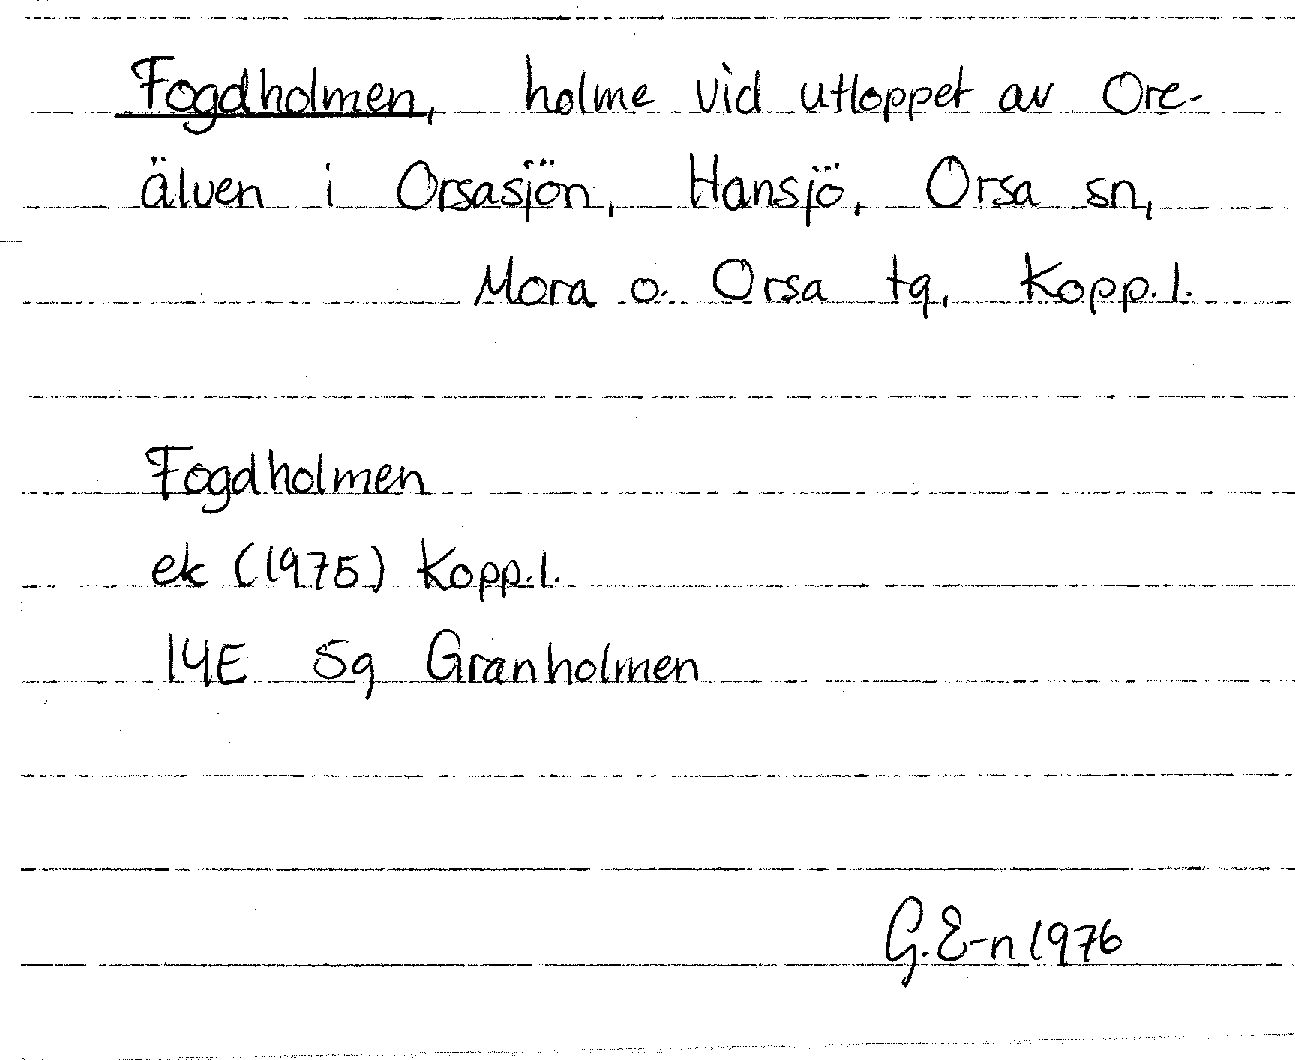 Fogdholmen, holme vid utloppet av Ore-
älven i Orsasjön, Hansjö, Orsa sn,
Mora o. Orsa tg, Kopp.l.
Fogdholmen
ek (1975) Kopp.l.
14E 5g Granholmen
G.E-n 1976